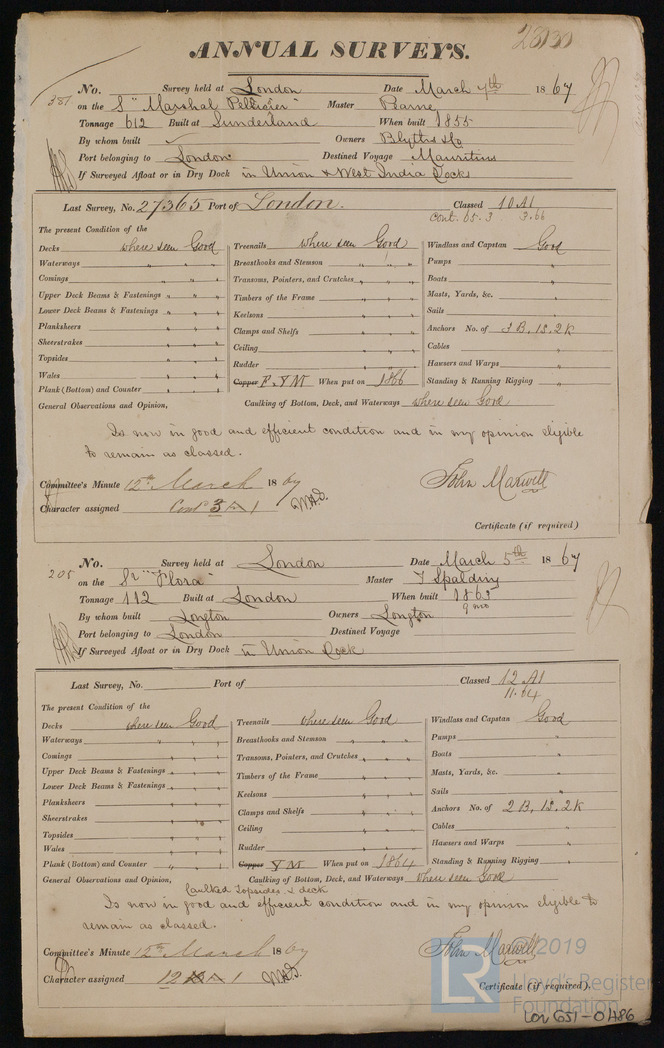 ANNUAL SURVEYS.
No. Survey held at London Date March 7th 1867
381 on the S "Marshal Pelissier" Master Barne
Tonnage 612 Built at Sunderland When built 1855
By whom built Owners Blyths & Co
Port belonging to London Destined Voyage Mauritius
If Surveyed Afloat or in Dry Dock in Union & West India Dock
Last Survey, No. 27365 Port of London. Classed 10 A1
Cont. 65. 3 3.66
The present Condition of the
Decks where seen Good Treenails where seen Good Windlass and Capstan Good
Waterways " " " Breasthooks and Stemson " " " Pumps "
Comings " " " Transoms, Pointers, and Crutches " " " Boats "
Upper Deck Beams & Fastenings " " " Timbers of the Frame " " " Masts, Yards, &c. "
Lower Deck Beams & Fastenings " " " Keelsons " " " Sails "
Planksheers " " " Clamps and Shelfs " " " Anchors No. of 3 B, 1S, 2K
Sheerstrakes " " " Ceiling " " " Cables "
Topsides " " " Rudder " " " Hawsers and Warps "
Wales " " " Copper F Y M When put on 1866 Standing & Running Rigging "
Plank (Bottom) and Counter " " "
General Observations and Opinion, Caulking of Bottom, Deck, and Waterways where seen Good
Is now in good and efficient condition and in my opinion eligible
to remain as classed.
Committee's Minute 12th March 1867 John Maxwell
Character assigned Contd 3 A 1
Certificate (if required)
No. Survey held at London Date March 5th 1867
205 on the Sr "Flora" Master J Spalding
Tonnage 112 Built at London When built 1863
9 mo
By whom built Longton Owners Longton
Port belonging to London Destined Voyage
If Surveyed Afloat or in Dry Dock in Union Dock
Last Survey, No. Port of Classed 12 A1
11.64
The present Condition of the
Decks where seen Good Treenails where seen Good Windlass and Capstan Good
Waterways " " " Breasthooks and Stemson " " " Pumps "
Comings " " " Transoms, Pointers, and Crutches " " " Boats "
Upper Deck Beams & Fastenings " " " Timbers of the Frame " " " Masts, Yards, &c. "
Lower Deck Beams & Fastenings " " " Keelsons " " " Sails "
Planksheers " " " Clamps and Shelfs " " " Anchors No. of 2 B, 1S, 2K
Sheerstrakes " " " Ceiling " " " Cables "
Topsides " " " Rudder " " " Hawsers and Warps "
Wales " " " Copper Y M When put on 1864 Standing & Running Rigging "
Plank (Bottom) and Counter " " "
General Observations and Opinion, Caulking of Bottom, Deck, and Waterways where seen Good
Caulked Topsides & deck
Is now in good and efficient condition and in my opinion eligible to
remain as classed.
Committee's Minute 12th March 1867 John Maxwell
Character assigned 12 A 1
Certificate (if required).
LR © 2019
Lloyd's Register
Foundation
LON 651-0486